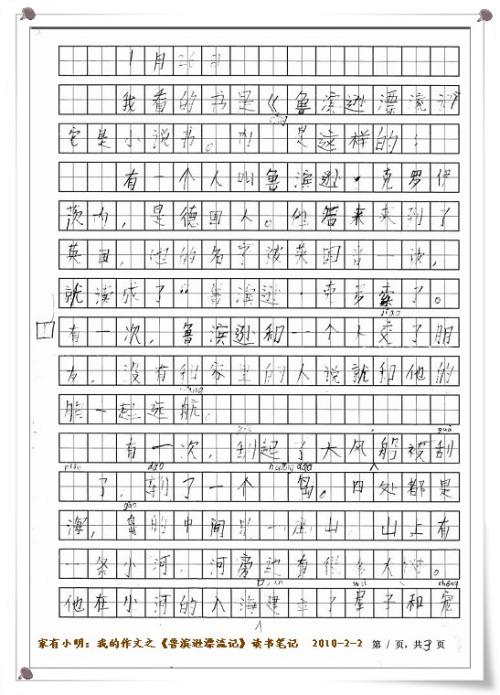 1月26日
我看的书是《鲁滨逊漂流记
它是小说书。 是这样的:
有一个人叫鲁滨逊·克罗伊
茨内,是德国人。他 来到了
英国,他的名字被英国 一读,
就读成了“鲁滨逊·克罗索。
有一次,鲁滨逊和一个人交了朋
jiāo
友,没有和家里的人说就和他的
朋 一起远航。
háng
有一次,刮起了大风,船被刮
guā guā
了,到了一个 岛。四处都是
piāo dào huāng dǎo
海,岛的中间是一座山,山上有
dǎo
一条小河,河旁边有很多大树。
他在小河的入海建立了屋子和宠
kǒu wū chǒng
家有小明:我的作文之《鲁滨逊漂流记》读书笔记 2010-2-2 第1页,共3页